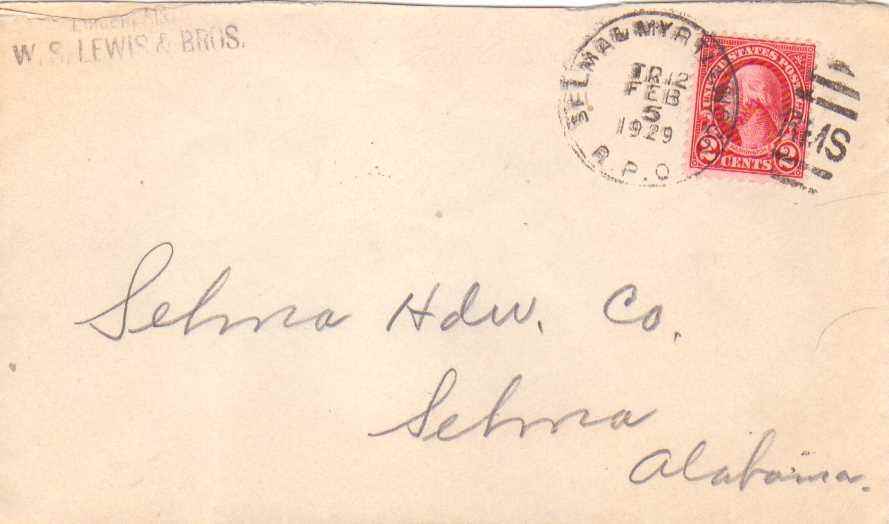 W. S. LEWIS & BROS.
SELMA & MYRT
TR.12
FEB
5
1929
R.P.O.
UNITED STATES POSTAGE
2 CENTS 2
RMS
Selma Hdw. Co.
Selma
Alabama.